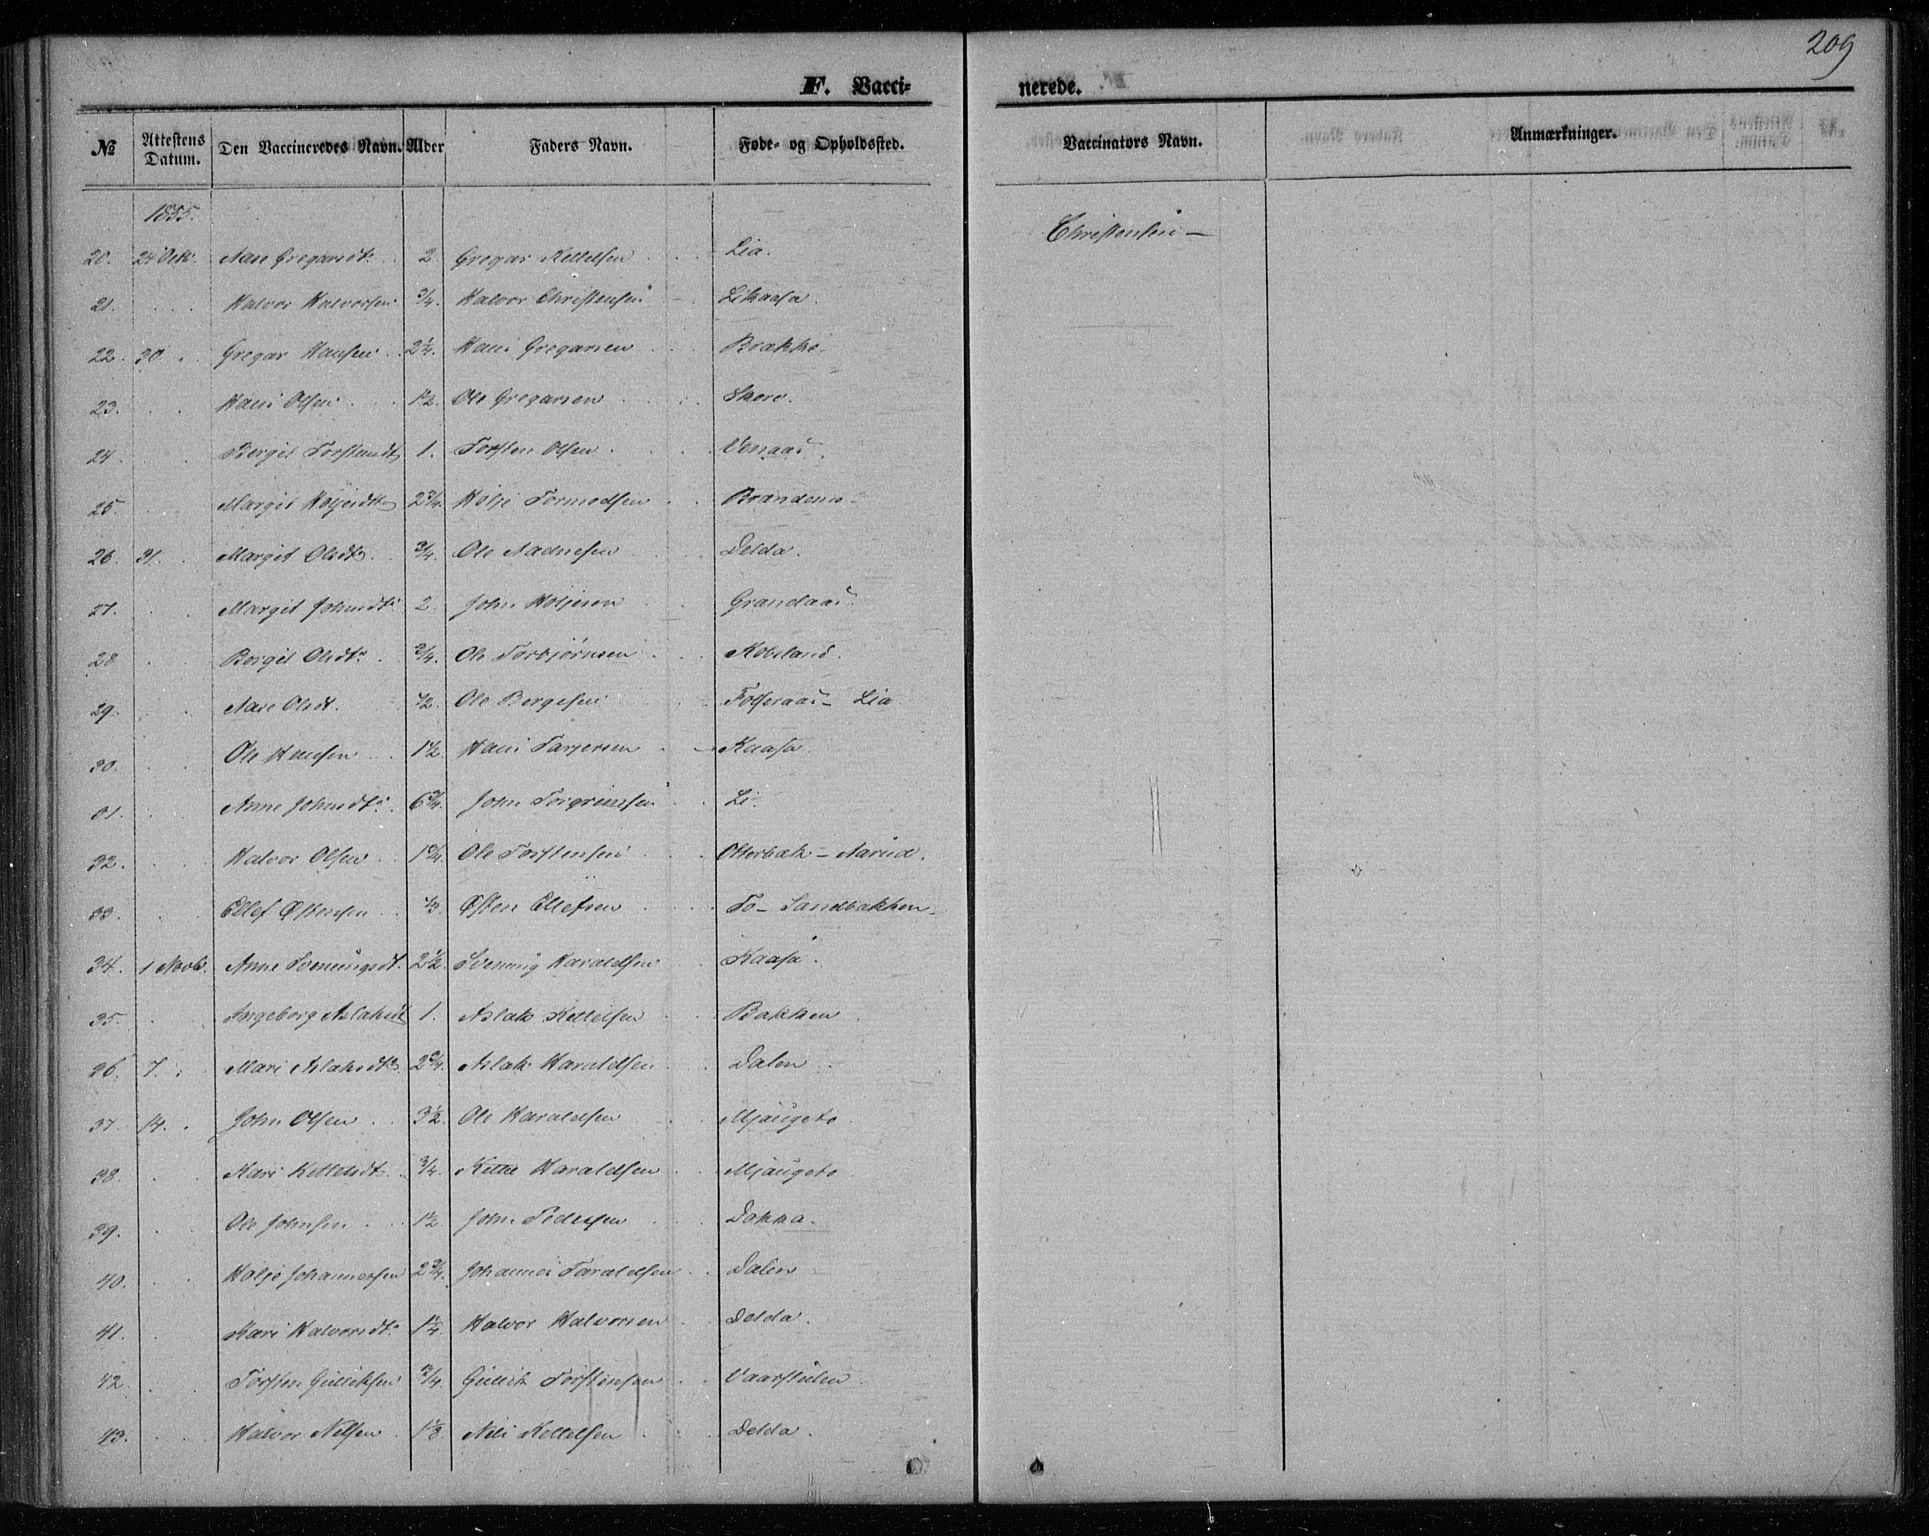 209
F. Vacci-
nerede.
№ Attestens Datum. Den Vaccineredes Navn. Alder Faders Navn. Føde- og Opholdssted. Vaccinators Navn. Anmærkninger.
1855.
20. 24 Octr. Aase Gregarsdtr. 2 Gregar Kettelsen Lia. Christensen —
21. Halvor Halvorsen 3/4. Halvor Christensen Likaasa.
22. 30. Gregar Hansen 2 1/4. Hans Gregarsen Brække.
23. Hans Olsen 1/2. Ole Gregarsen Skore.
24. Bergit Torstensdtr 1. Torsten Olsen Venaas.
25. Margit Høljesdtr 2 3/4. Hølje Tormodsen
26. 31. Margit Olsdtr 3/4. Ole Aadnesen Delda.
27. Margit Johnsdtr 2. John Høljesen Grandaas.
28 Bergit Olsdtr. 3/4. Ole Torbjørnsen
29. Aase Olsdt. 1/2. Ole Bergesen Folseraas — Lia
30. Ole Hansen 1 1/2. Hans Tarjersen Kaasa
31. Anne Johnsdtr. 6 3/4. John Torgrimsen Li.
32. Halvor Olsen 1 3/4. Ole Torstensen Otterbæk — Aarud.
33. Ellef Østensen 1/3. Østen Ellefsen To — Sandbakken.
34. 1 Novb. Anne Sveinungsdt. 2 1/2. Svenung Haraldsen Kaasa.
35. Ingeborg Aslaksdt 1. Aslak Kettelsen Bakken
36. 7. Mari Aslaksdtr. 2 3/4. Aslak Haraldsen Dalen
37. 14. John Olsen 3 1/2. Ole Haraldsen Mjaugeto
38. Kari Kettelsdt. 3/4. Kettel Haraldsen Mjaugeto
39. Ole Johnsen 1 1/2. John Pedersen Dokka.
40. Hølje Johannessen 2 3/4. Johannes Taraldsen Dalen
41. Kari Halvorsdtr. 1 1/4. Halvor Halvorsen Delda.
42 Torsten Gulliksen 3/4. Gullik Torstensen Vaarstulen
43. Halvor Nilsen 1 1/3. Nils Kettelsen Delda.